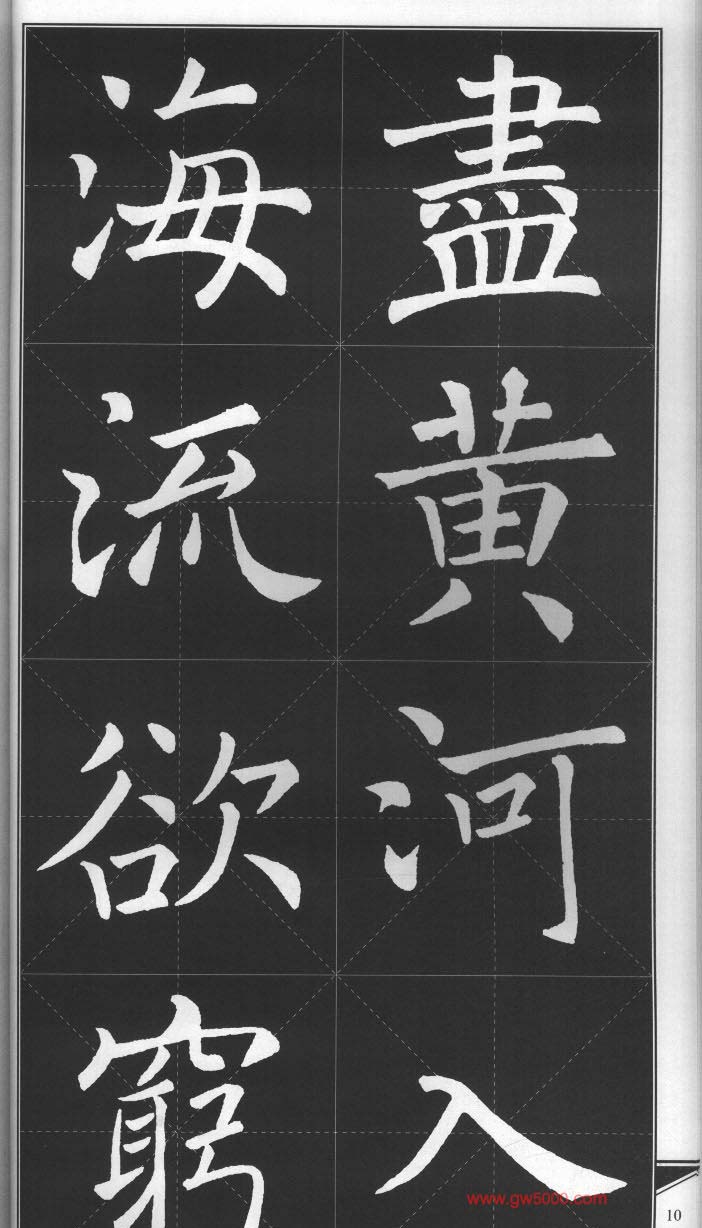 盡黃河入
海流欲窮
www.gw5000.com
10